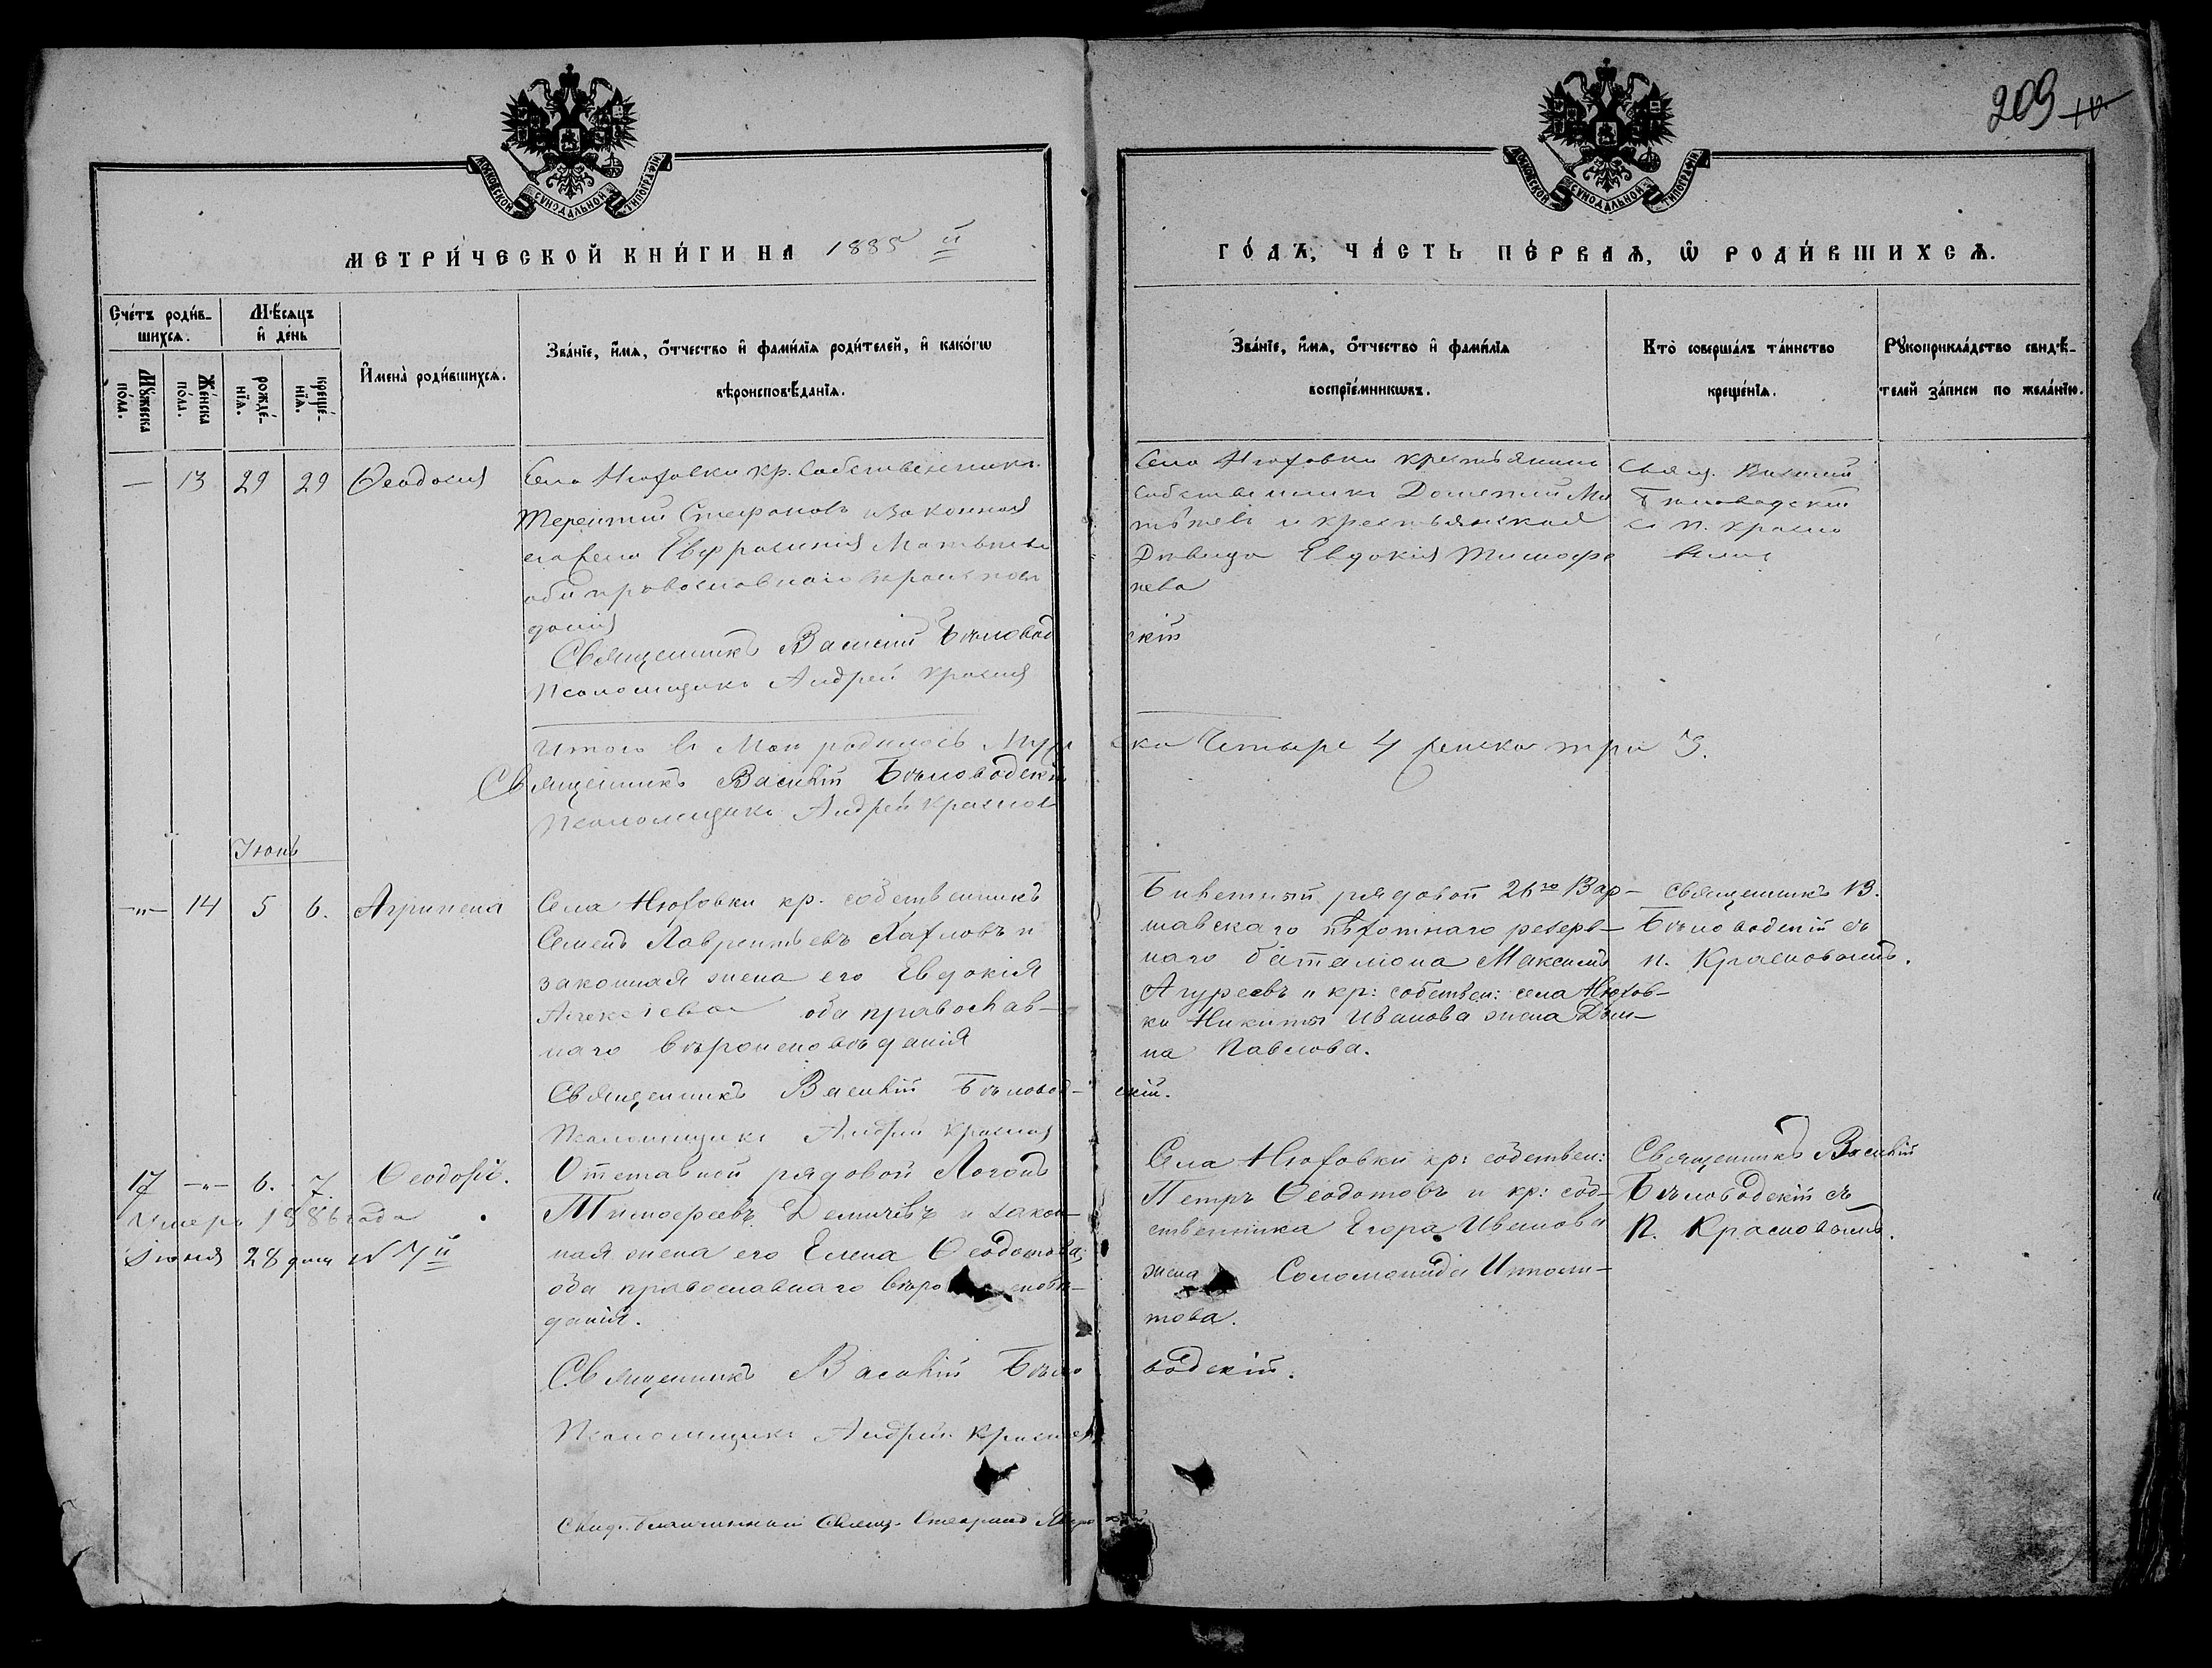 209
МОСКОВСКОЙ СѴНОДАЛЬНОЙ ТИПОГРАФІИ
МОСКОВСКОЙ СѴНОДАЛЬНОЙ ТИПОГРАФІИ
МЕТРИ́ЧЕСКОЙ КНИ́ГИ НА 1885 й
ГО́ДЪ, ЧА́СТЬ ПЕ́РВАѦ, Ѡ РОДИ́ВШИХСѦ.
Сче́тъ роди́в-
шихсѧ.
Мѣ́сѧцъ
и҆ де́нь
Мꙋ́жеска
по́ла.
Же́нска
по́ла.
рожде́-
нїѧ.
креще́-
нїѧ.
И҆мена̀ роди́вшихсѧ.
Зва́нїе, и҆́мѧ, ѻ҆́тчество и҆ фами́лїѧ роди́телей, и҆ како́гѡ
вѣроисповѣ́данїѧ.
Зва́нїе, и҆́мѧ, ѻ҆́тчество и҆ фами́лїѧ
воспрїе́мникѡвъ.
Кто̀ соверша́лъ та́инство
креще́нїѧ.
Рꙋкоприкла́дство свидѣ́-
телей за́писи по жела́нїю.
— 13 29 29 Ѳеодосія
Села Нюховки кр. собственникъ
Терентий Стефановъ и законная
его жена Евфросинія Матвеева
оба православнаго вероиспове
данія
Священникъ Василій Бѣловод
скій
Псаломщикъ Андрей
Села Нюховки крестьянинъ
собственникъ Дометий Ма
твеевъ и крестьянская
Девица Евдокія Тимофе
ева
Свящ. Василий
Беловодский
с п.
Итого въ Маи родилось Муже
ска Четыре 4 женска три 3.
Священникъ Василій Бѣловодскій
Псаломщикъ Андрей
Іюнь
—"— 14 5 6. Агрипена
Села Нюховки кр. собственникъ
Семенъ Лаврентьевъ и
законная жена его Евдокія
Алексѣева оба православ-
наго вѣроисповѣданія
Священникъ Василій Бѣловод-
скій.
Псаломщикъ Андрей
Билетный рядовой 26го Вар-
шавскаго пѣхотнаго резерв-
наго баталіона Максимъ
Агуреевъ и кр: собствен: села Нюхов-
ки Никиты Иванова жена Дом-
на Павлова.
Священникъ В.
Бѣловодскій съ
п. Красновымъ.
17 —"— 6. 7 Ѳеодосій.
Умеръ 1886 года
Іюня 28 дня № 7й
Отставной рядовой Логинъ
Тимоѳеевъ и закон-
ная жена его Елена Ѳеодотова,
оба православнаго вѣроисповѣ-
данія.
Священникъ Василій Бѣло
водскій.
Псаломщикъ Андрей
Села Нюховки кр: собствен:
Петръ Ѳеодотовъ и кр: соб-
ственника Егора Иванова
жена Соломонида Ипполи-
това.
Священникъ Василій
Бѣловодскій съ
п. Красновымъ.
Свид. Благочинный Свящ. Стефанъ